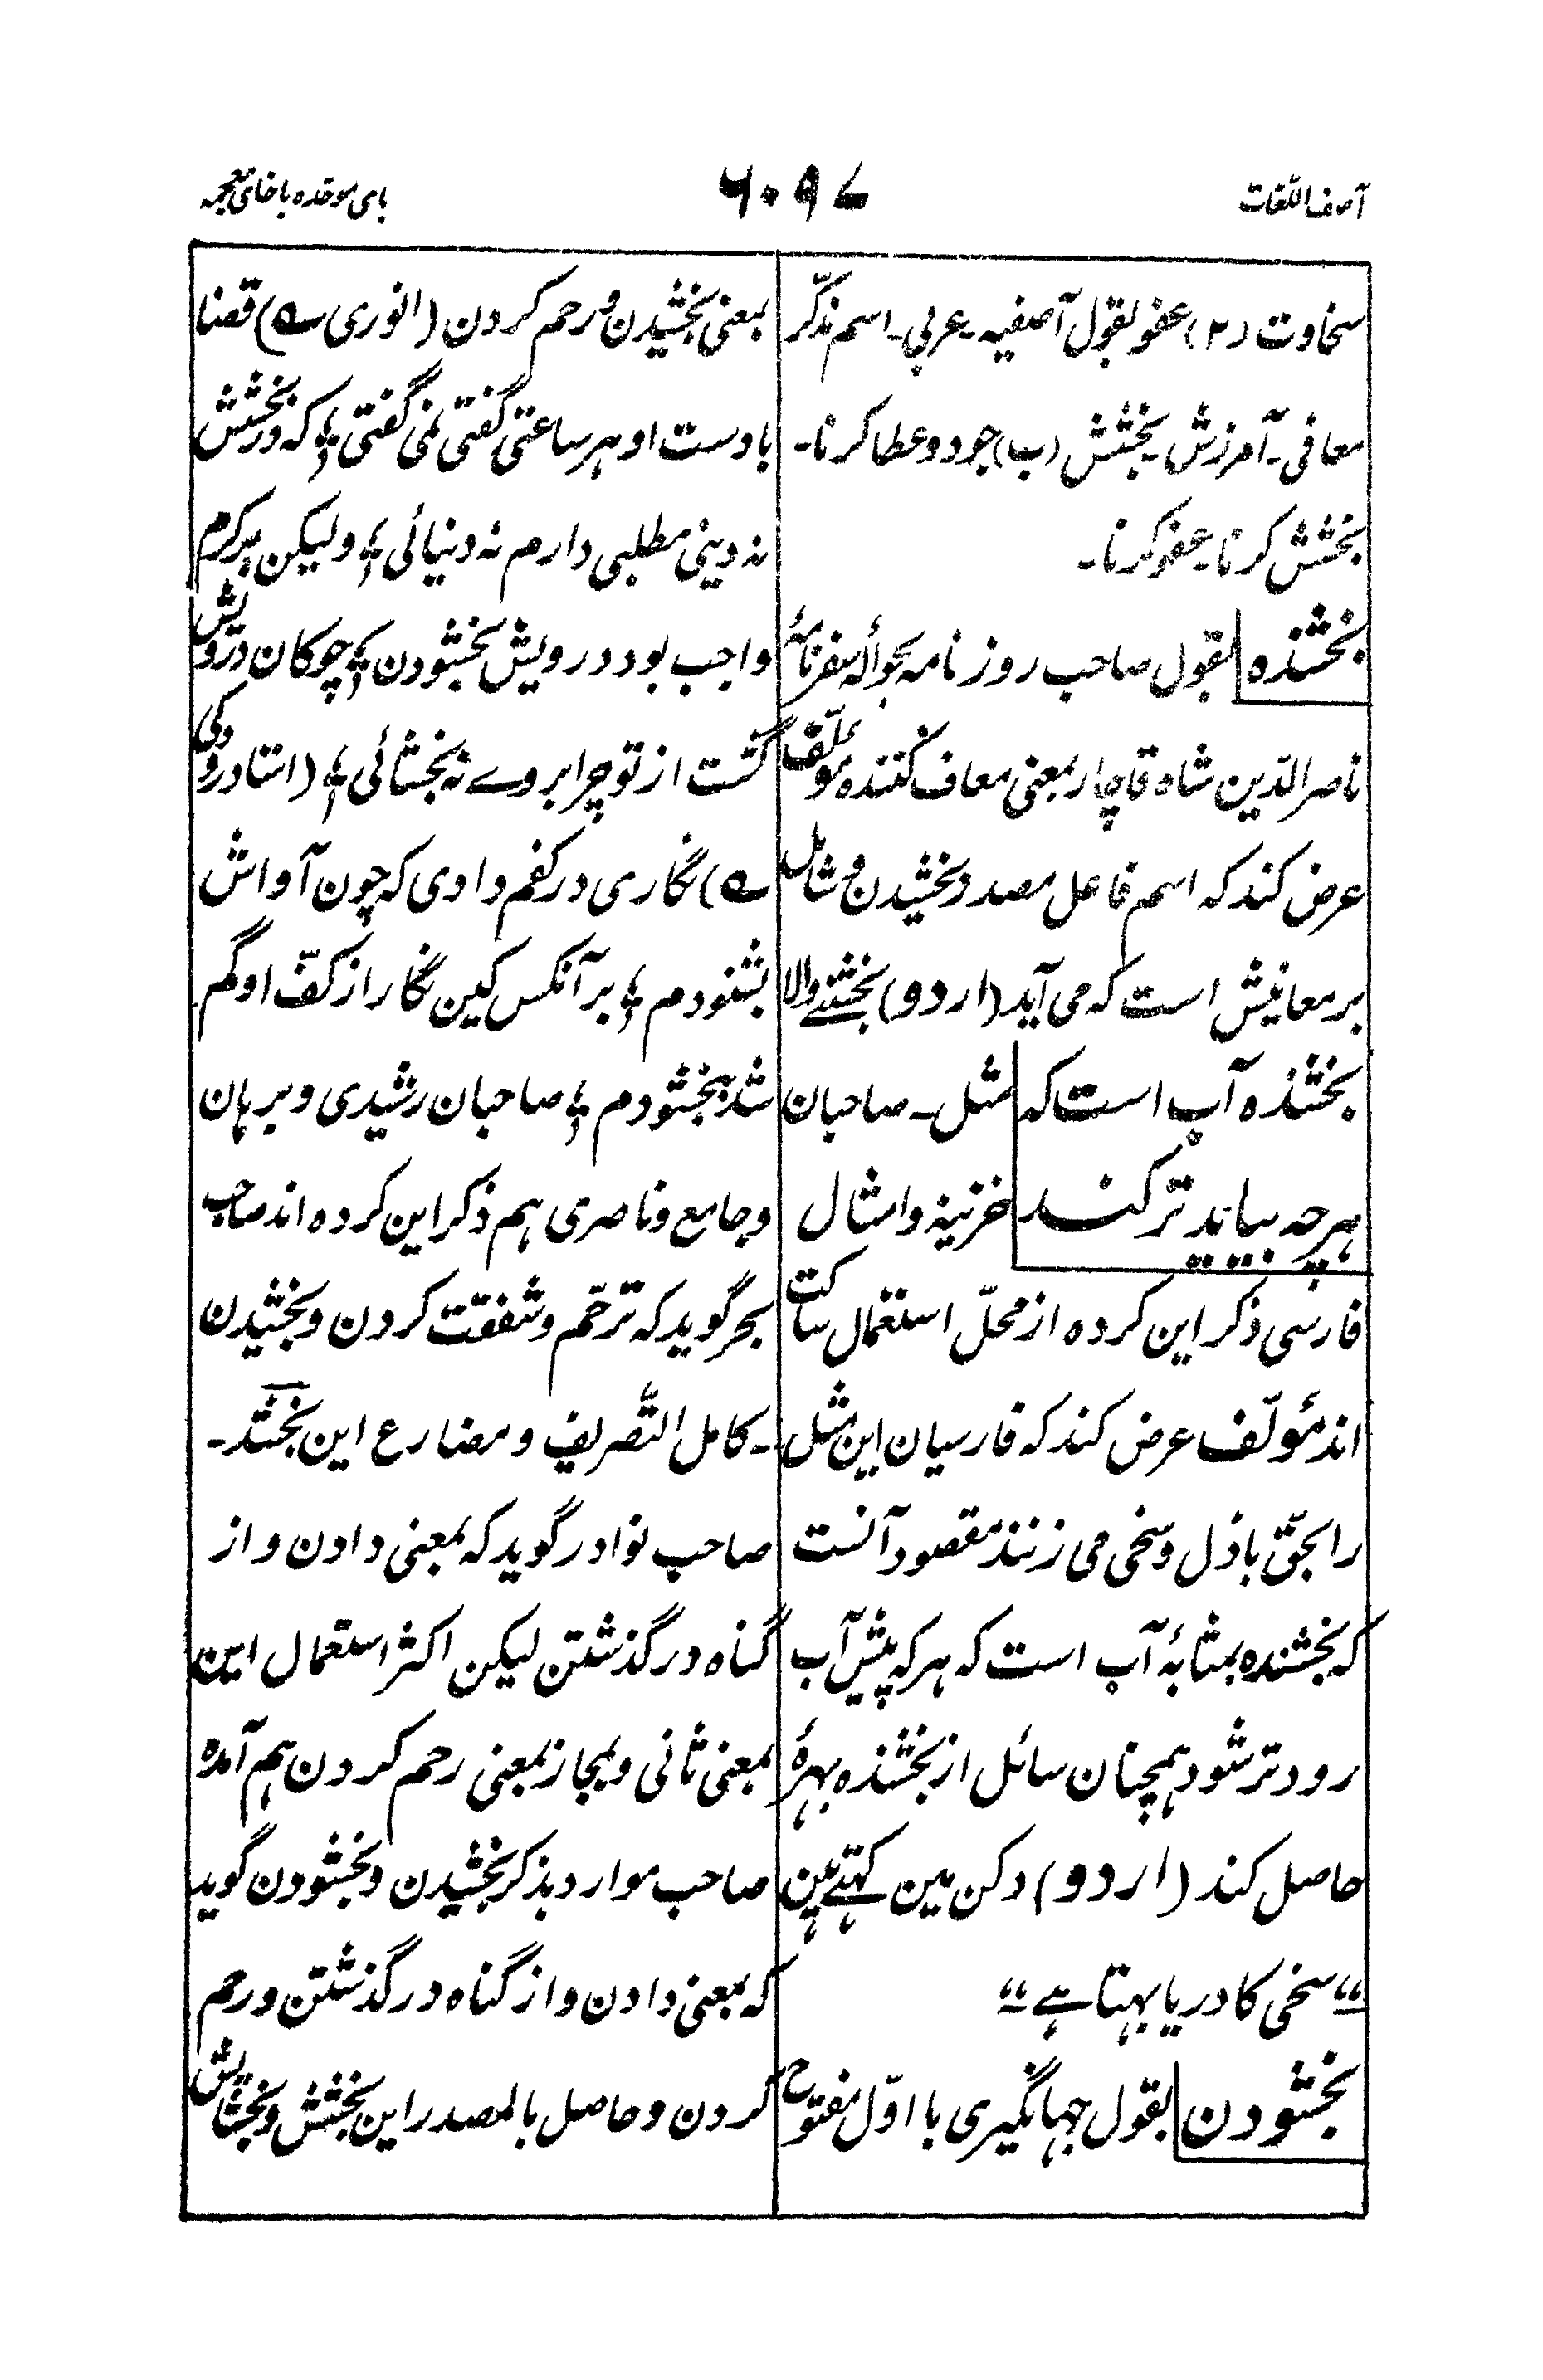 آصف اللغات
۶۰۹۷
بای موحّده باخای معجمه
سخاوت (۲) عفو بقول آصفیہ ۔ عربی ۔ اسم مذکّر
معافی ۔ آمرزش ۔ بخشش (ب) جود و عطا کرنا ۔
بخشش کرنا ۔ عفو کرنا ۔
بخشنده بقول صاحب روزنامه بحوالهٔ سفرنامهٔ
ناصر الدّین شاه قاچار بمعنی معاف کننده مؤلّف
عرض کند که اسم فاعل مصدر بخشیدن و شامل
بر معانیش است که می آید (اردو) بخشنے والا
بخشنده آب است که مثل ۔ صاحبان
هرچه بیابد تر کند خزینه و امثال
فارسی ذکر این کرده از محلّ استعمال ساکت
اند مؤلّف عرض کند که فارسیان این مثل
را بحقّ باذل و سخی می زنند مقصود آنست
که بخشنده بمثابهٔ آب است که هر که پیش آب
رود تر شود همچنان سائل از بخشنده بهرهٔ
حاصل کند (اردو) دکن مین کہتے ہین
“سخی کا دریا بہتا ہے”
بخشودن بقول جهانگیری با اوّل مفتوح
بمعنی بخشیدن و رحم کردن (انوری ے) قضا
با دست او هر ساعتی گفتی نمی گفتی ؛ که در بخشش
نه دینی مطلبی دارم نه دنیائی ؛ ولیکن بر کرم
واجب بود درویش بخشودن ؛ چو کان درویش
گشت از تو چرا بروے نه بخشائی ؛ (استاد رودکی
ے) نگاری در کفم دادی که چون آواش
بشنودم ؛ بر آنکس کین نگار از کفّ او گم
شد بخشودم ؛ صاحبان رشیدی و برهان
و جامع و ناصری هم ذکر این کرده اند صاحب
بحر گوید که ترحّم و شفقت کردن و بخشیدن
۔ کامل التّصریف و مضارع این بخشد ۔
صاحب نوادر گوید که بمعنی دادن و از
گناه در گذشتن لیکن اکثر استعمال این
بمعنی ثانی و بمجاز بمعنی رحم کردن هم آمده
صاحب موارد بذکر بخشیدن و بخشودن گوید
که بمعنی دادن و از گناه در گذشتن و رحم
کردن و حاصل بالمصدر این بخشش و بخشایش